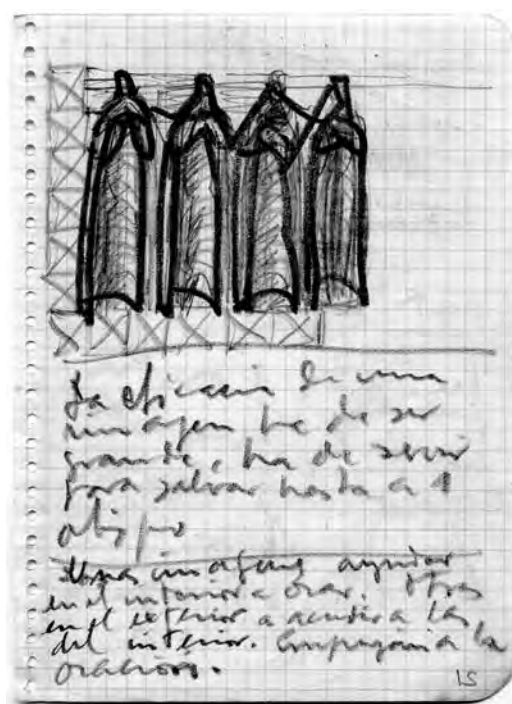 La eficacia de una
imagen ha de ser
grande, ha de servir
para salvar hasta a 1
obispo
Unas imágenes ayudan
en el interior a orar. Otras
en el exterior a acudir a las
del interior. a la
oración.
15